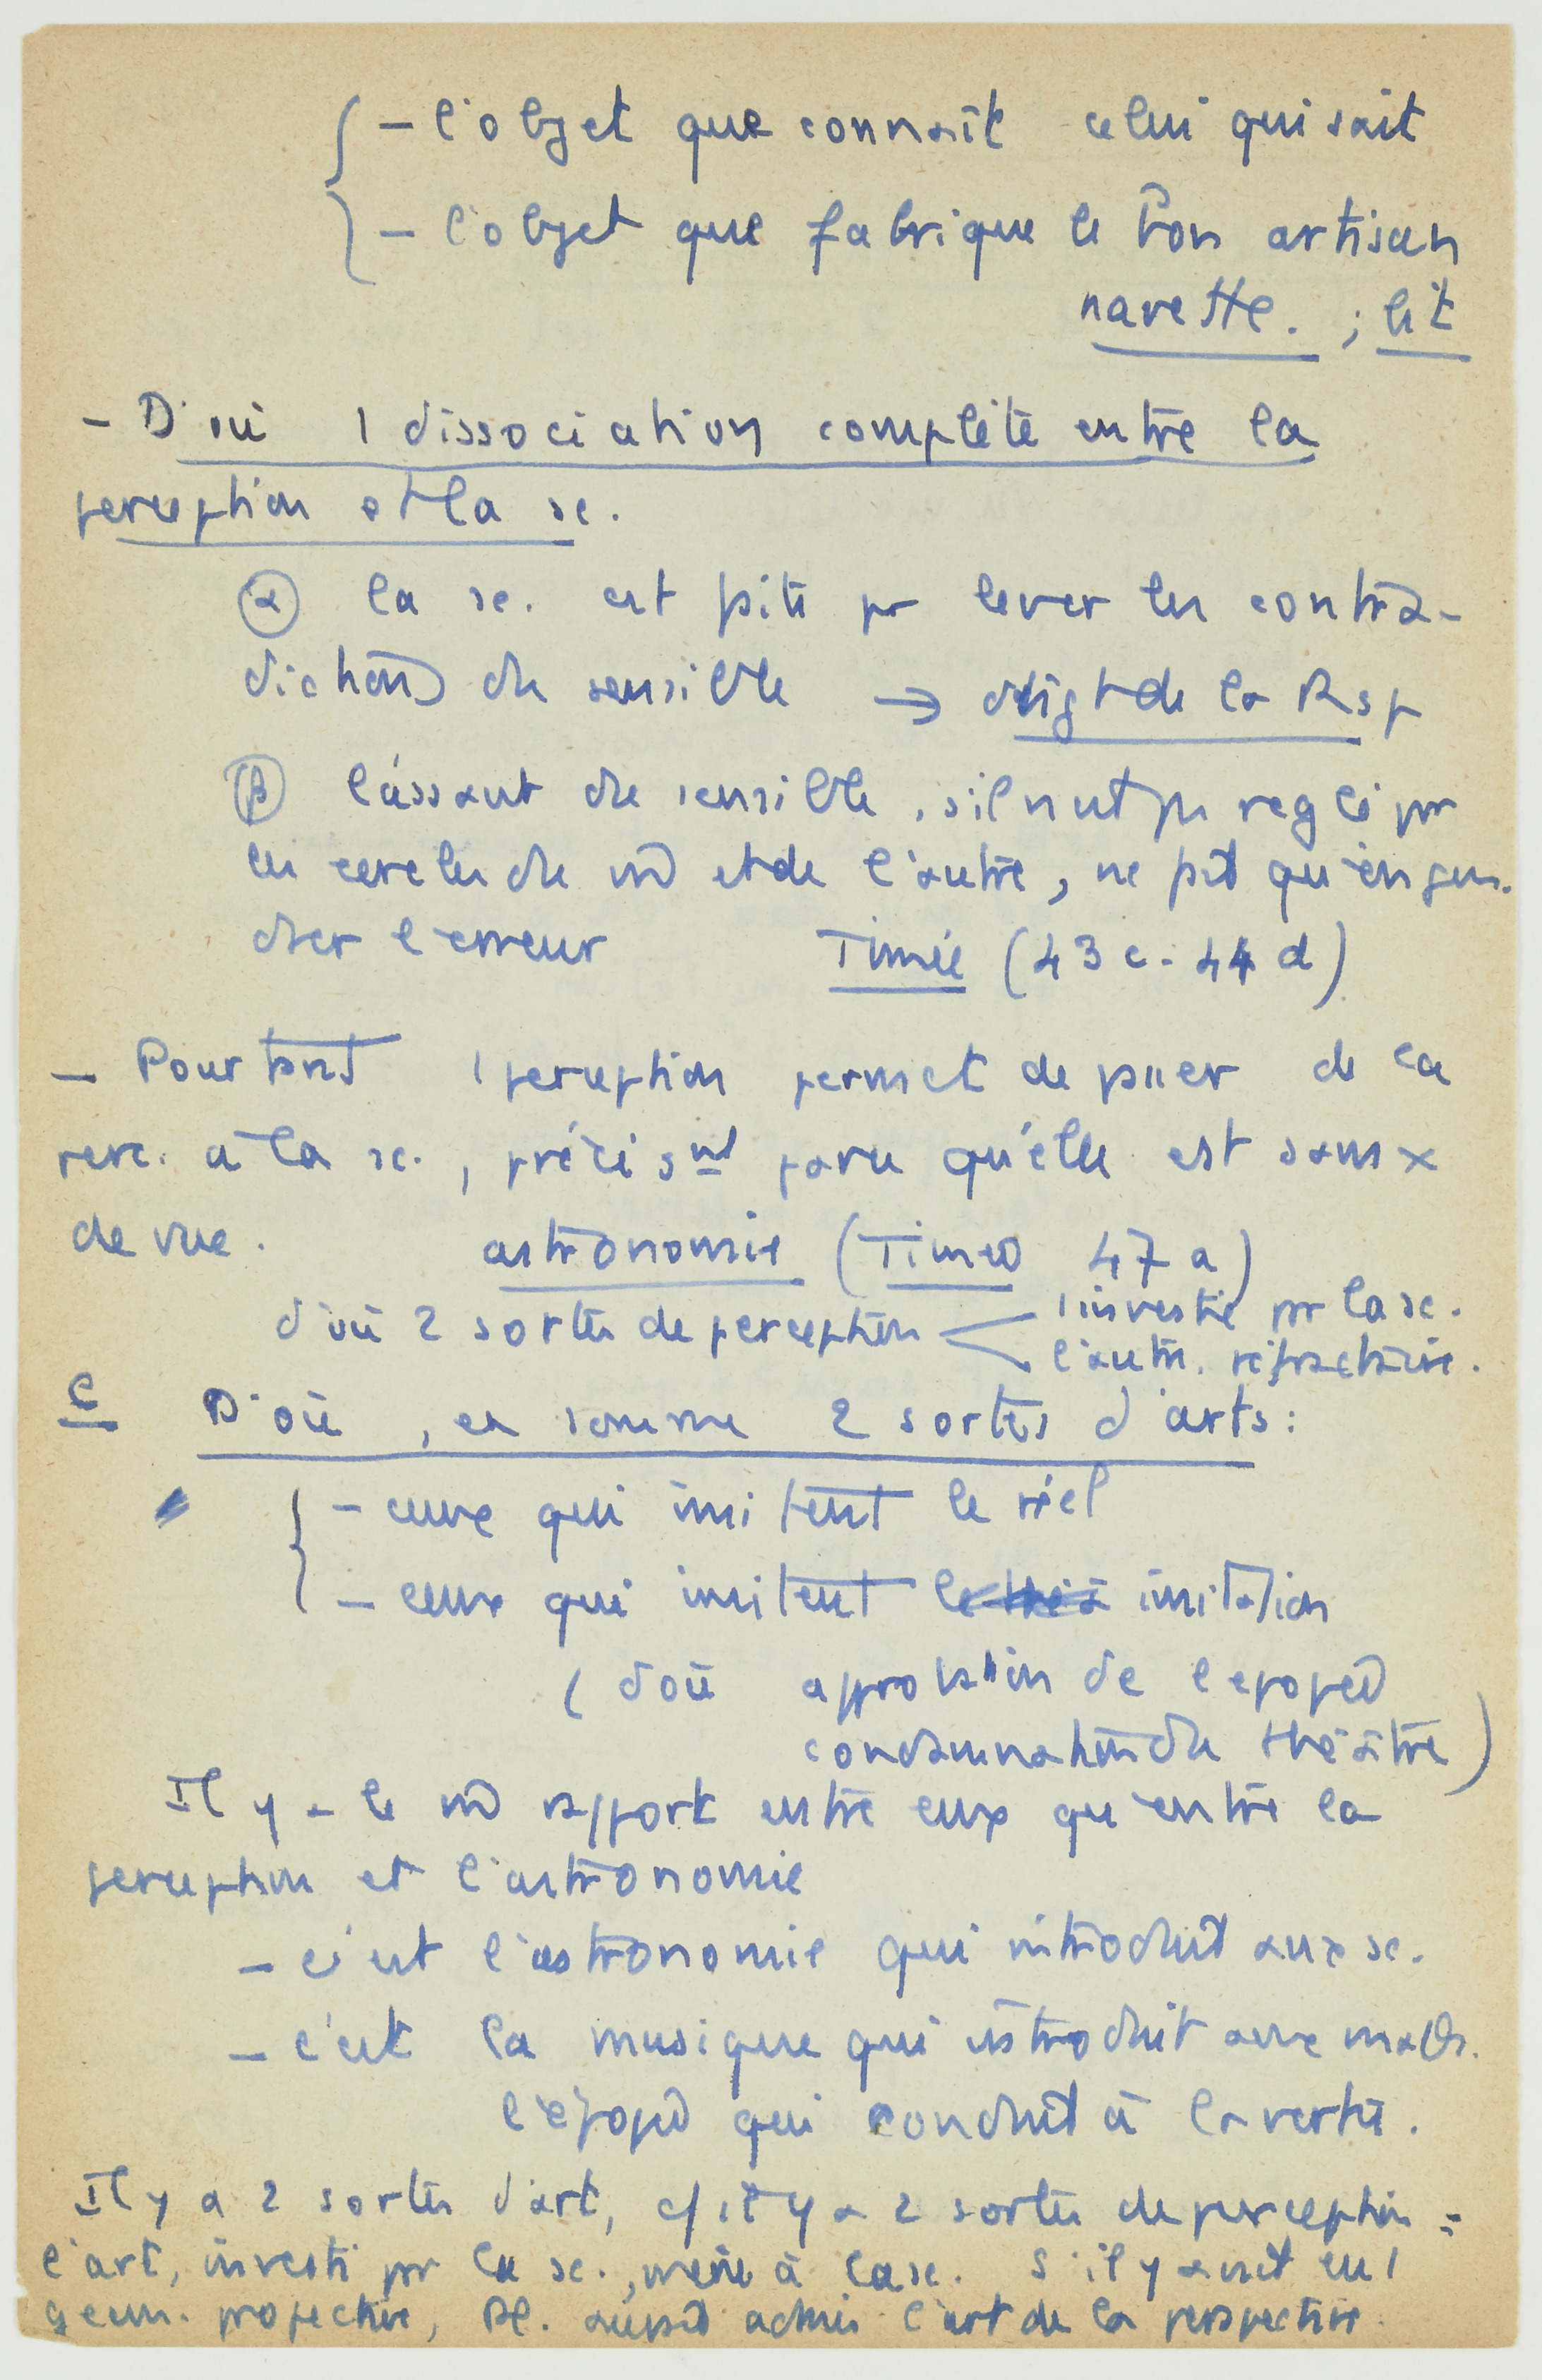 - l'objet que connaît celui qui sait
- l'objet que fabrique le bon artisan
navette. ; lit
- D'où 1 dissociation complète entre la
perception et la sc.
α la sc. est faite pr lever les contra-
dictions du sensible → de la Rsp
β l'assaut du sensible, s'il n'est pas reglé par
les cercles du m̂ et de l'autre, ne peut qu'engen-
drer l'erreur Timée (43 c - 44 d)
- Pourtant 1 perception permet de passer de la
perc. à la sc., précisnt parce qu'elle est
de vue. astronomie (Timée 47 a)
d'où 2 sortes de perception 1 investie par la sc.
l'autre. réfractaire.
C D'où, en somme 2 sortes d'arts :
- ceux qui imitent le réel
- ceux qui imitent imitation
(d'où approbation de l'épopée
condamnation du théâtre)
Il y a le m̂ rapport entre eux qu'entre la
perception et l'astronomie
- c'est l'astronomie qui introduit aux sc.
- c'est la musique qui introduit aux maths.
l'épopée qui conduit à la vertu.
Il y a 2 sortes d'art, c/ il y a 2 sortes de perception :
l'art, investi par la sc., mène à la sc. S'il y avait eu 1
geom. projective, Pl. aurait admis l'art de la perspective.